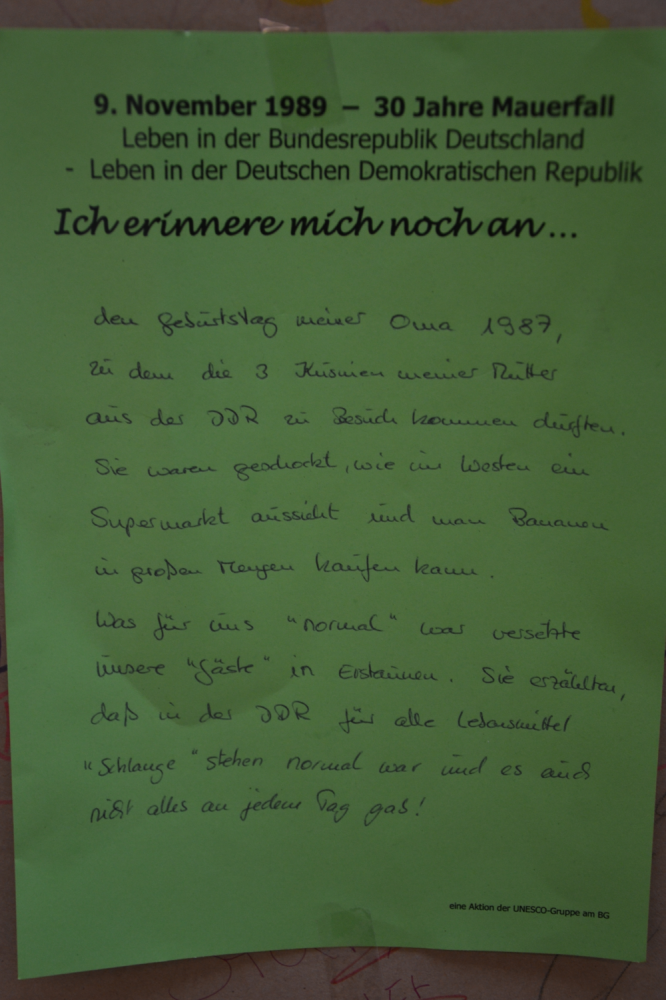 9. November 1989 – 30 Jahre Mauerfall
Leben in der Bundesrepublik Deutschland
- Leben in der Deutschen Demokratischen Republik
Ich erinnere mich noch an ...
den Geburtstag meiner Oma 1987,
zu dem die 3 Kusinen meiner Mutter
aus der DDR zu Besuch kommen durften.
Sie waren geschockt, wie im Westen ein
Supermarkt aussieht und man Bananen
in großen Mengen kaufen kann.
Was für uns "normal" war versetzte
unsere "Gäste" in Erstaunen. Sie erzählten,
daß in der DDR für alle Lebensmittel
"Schlange" stehen normal war und es auch
nicht alles an jedem Tag gab!
eine Aktion der UNESCO-Gruppe am BG